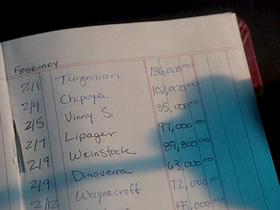 FEBRUARY
2/1 Turgenian 136,000.00
2/4 Chipoya 103,000.00
2/5 Vinny S. 35,000.00
2/7 Lipager 97,000.00
2/9 Weinstock 89,800.00
2/9 Dinoverra 63,000.00
2/12 Waynecroft 72,000.00